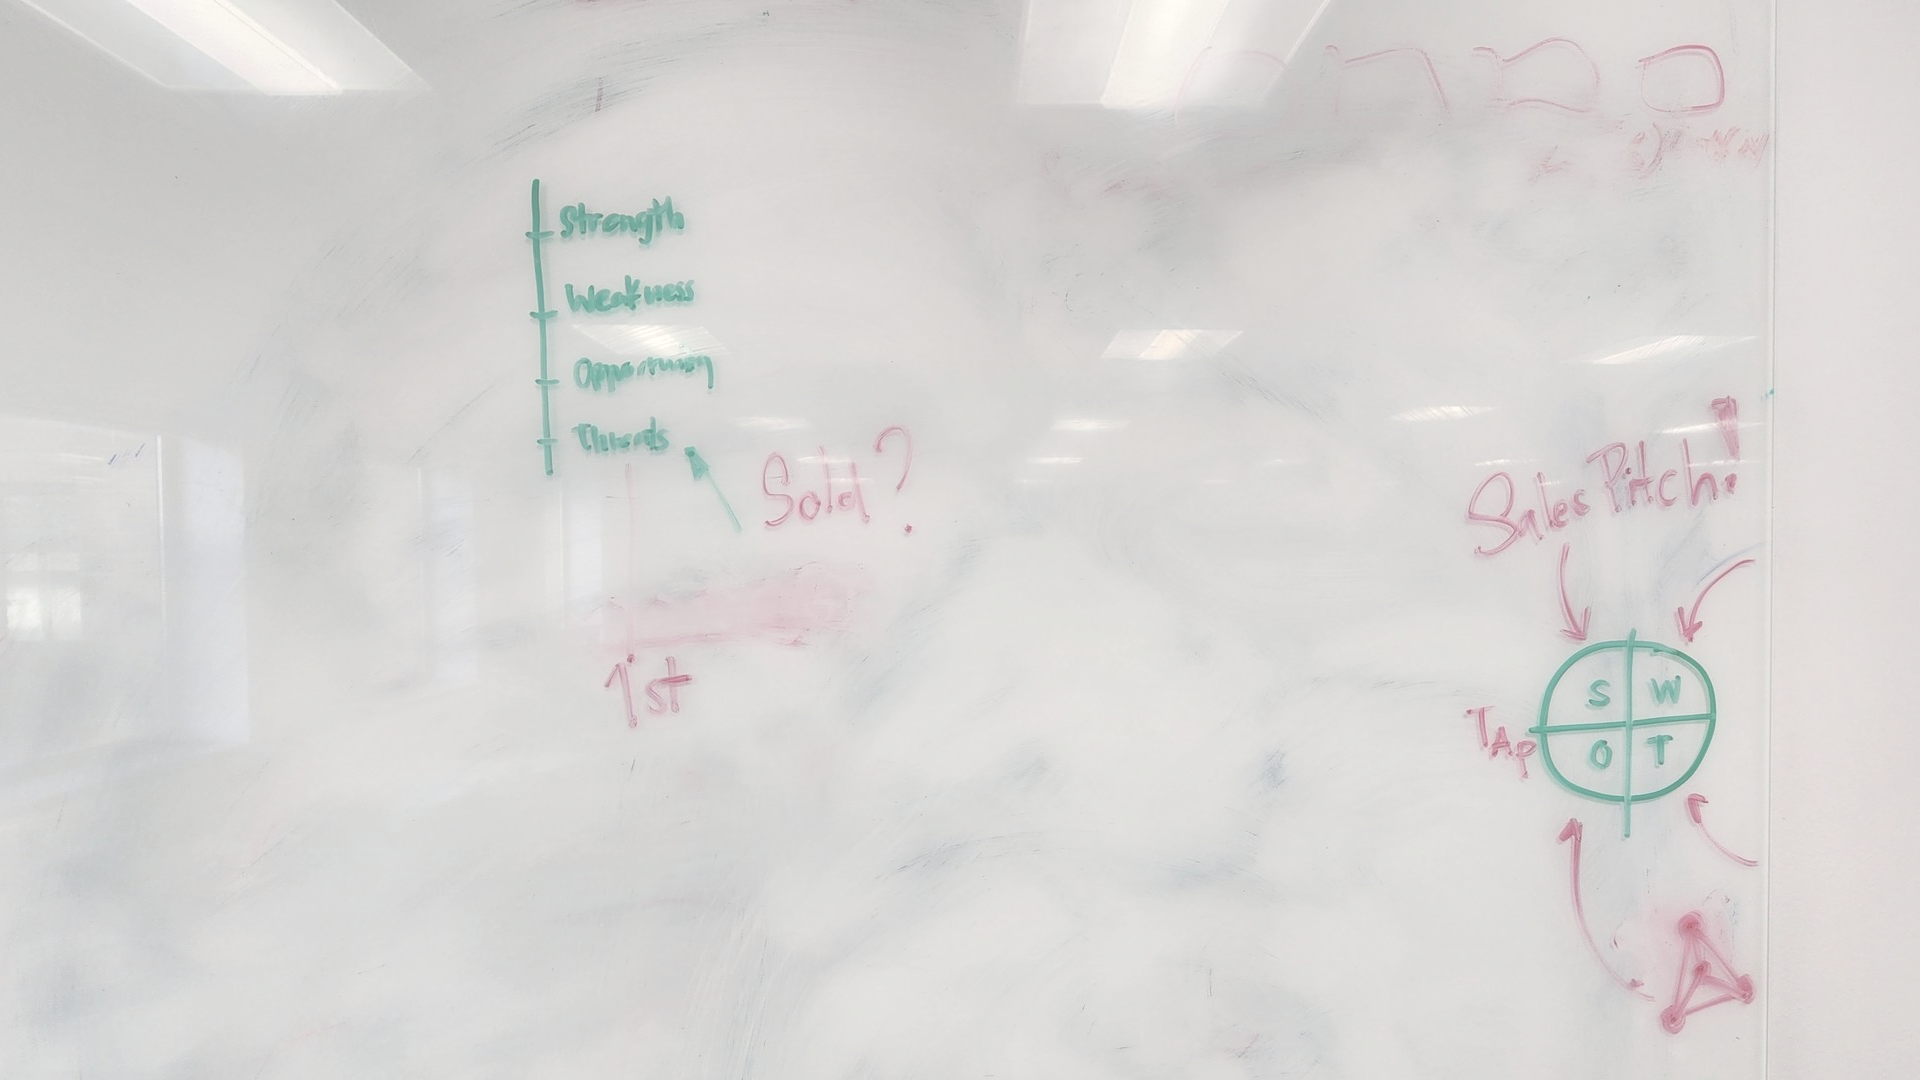 Strength
Weakness
Opportunity
Threats
Sold?
1st
Sales Pitch!
S W
O T
TAP